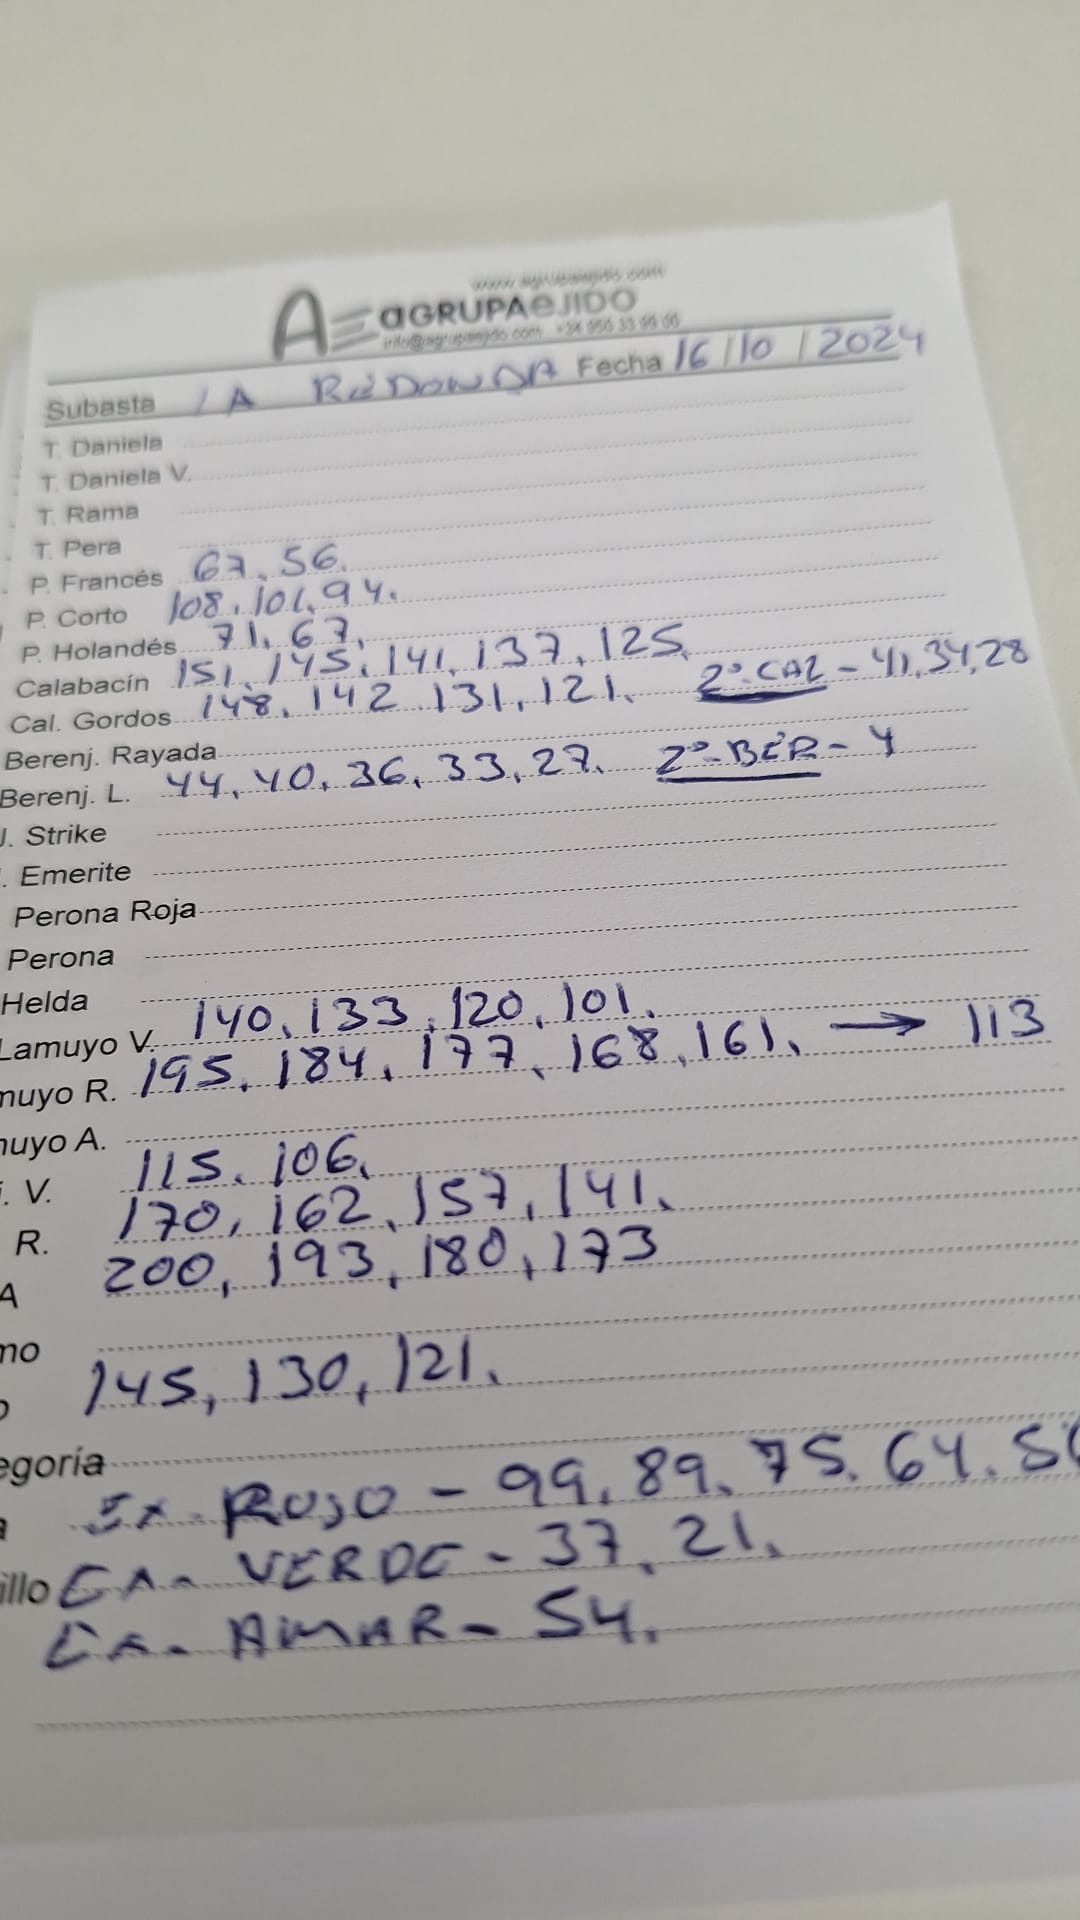 www.agrupaejido.com
AE aGRUPAeJIDO
info@agrupaejido.com
Subasta LA REDONDA Fecha 16/10/2024
T. Daniela
T. Daniela V.
T. Rama
T. Pera
P. Francés 67, 56.
P. Corto 108, 101, 94.
P. Holandés 71, 67.
Calabacín 151, 145, 141, 137, 125.
Cal. Gordos 148, 142. 131, 121. 2ª CAL - 41, 34, 28
Berenj. Rayada
Berenj. L. 44, 40, 36, 33, 27. 2ª BER - 4
J. Strike
. Emerite
Perona Roja
Perona
Helda
Lamuyo V. 140, 133, 120, 101.
muyo R. 195, 184, 177, 168, 161. → 113
nuyo A.
. V. 115, 106.
R. 170, 162, 157, 141.
A 200, 193, 180, 173
no
o 145, 130, 121.
egoría
a EX. ROJO - 99, 89, 75, 64, 5
illo EX. VERDE - 37, 21.
EX. AMAR - 54.